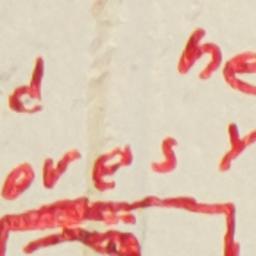 d he
oves y